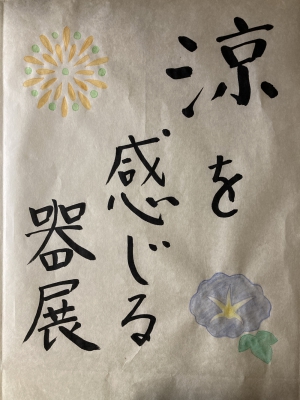 涼を
感じる
器展